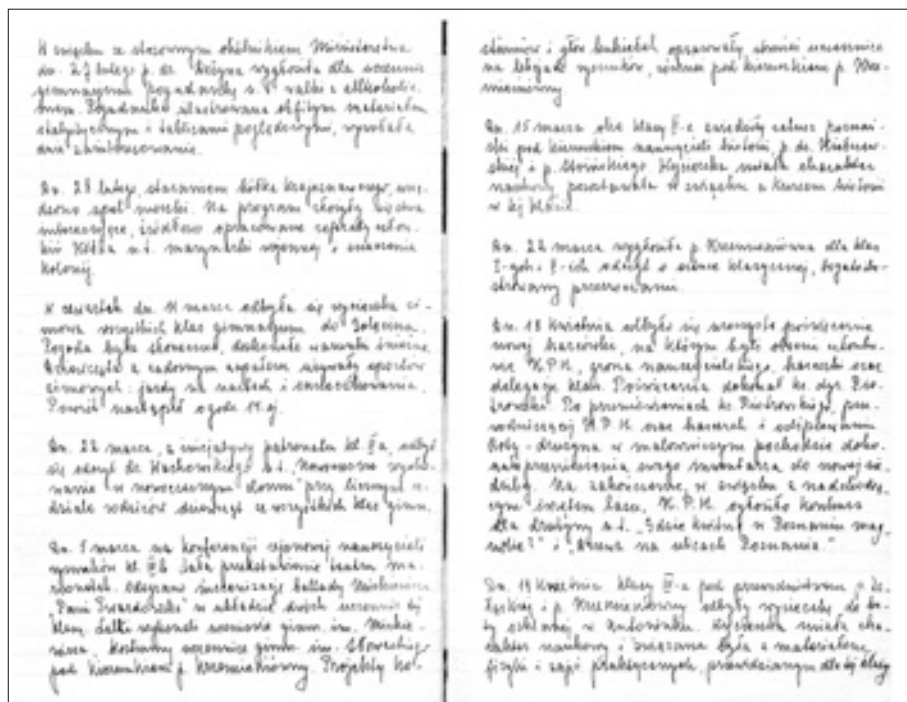 W związku ze stosownym okólnikiem Ministerstwa
dn. 27 lutego p. dr. wygłosiła dla uczennic
gimnazjum pogadankę n.t. walki z alkoholiz-
mem. Pogadanka ilustrowana obfitym materiałem
statystycznym i tablicami poglądowymi, wywołała
duże zainteresowanie.
Dn. 28 lutego, staraniem kółka krajoznawczego, urzą-
dzono apel morski. Na program złożyły się dwa
interesujące, źródłowo opracowane referaty człon-
kiń Kółka n.t. marynarki wojennej i znaczenia
kolonij.
W czwartek dn. 11 marca odbyła się wycieczka zi-
mowa wszystkich klas gimnazjum do Golęcina.
Pogoda była słoneczna, doskonałe warunki śnieżne.
Dziewczęta z radosnym zapałem używały sportów
zimowych: jazdy na nartach i saneczkowania.
Powrót nastąpił o godz. 14-ej.
Dn. 22 marca, z inicjatywy patronatu kl. II a, odbył
się odczyt dr. Wachowskiego n.t. "Nowoczesne wycho-
wanie w nowoczesnym domu" przy licznym u-
dziale rodziców dziewcząt ze wszystkich klas gimn.
Dn. 5 marca na konferencji rejonowej nauczycieli
rysunków kl. III b dała przedstawienie teatru ma-
rionetek. Odegrano inscenizację ballady Mickiewicza
"Pani Twardowska" w układzie dwóch uczennic tej
klasy. Lalki wykonali uczniowie gimn. im. Mickie-
wicza, kostiumy uczennice gimn. im. Słowackiego
pod kierunkiem p. Krzemieniówny. Projekty ko-
stiumów i głów kukiełek opracowały również uczennice
na lekcjach rysunków, również pod kierunkiem p. Krze-
mieniówny.
Dn. 15 marca obie klasy zwiedziły ratusz poznań-
ski pod kierunkiem nauczycieli historii, p. dr.
i p. Słomińskiego. Wycieczka miała charakter
naukowy i pozostawała w związku z kursem historii
w tej klasie.
Dn. 22 marca wygłosiła p. Krzemieniówna dla klas
I-ych i odczyt o sztuce klasycznej, bogato ilu-
strowany przezroczami.
Dn. 18 kwietnia odbyło się uroczyste poświęcenie
nowej harcówki, na którym były obecne członki-
nie K.P.H., grono nauczycielskie, harcerki oraz
delegacje klas. Poświęcenia dokonał ks. dyr. Pio-
trowski. Po przemówieniach ks. Piotrowskiego, prze-
wodniczącej K.P.H. oraz harcerek i odśpiewaniu
Roty - drużyna w malowniczym pochodzie doko-
nała przeniesienia swego inwentarza do nowej sie-
dziby. Na zakończenie, w związku z nadchodzą-
cym świętem lasu, K.P.H. ogłosiło konkurs
dla drużyny n.t. "Gdzie kwitną w Poznaniu mag-
nolie?" i "Drzewa na ulicach Poznania."
Dn. 19 kwietnia klasy III-a pod przewodnictwem p.
i p. Krzemieniówny odbyły wycieczkę do hu-
ty szklanej w Antoninku. Wycieczka miała cha-
rakter naukowy i związana była z materiałem
fizyki i zajęć praktycznych, przewidzianym dla tej klasy